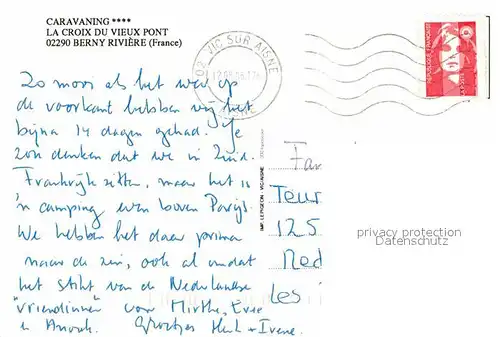 CARAVANING ****
LA CROIX DU VIEUX PONT
02290 BERNY RIVIÈRE (France)
02 VIC SUR AISNE
AISNE
REPUBLIQUE FRANÇAISE
Zo moos als het weer op
de voorkant hebben wij het
bijna 14 dagen gehad. Je
zou denken dat we in Zuid-
Frankrijk zitten, maar het is
'n camping even boven Parijs.
We hebben het daar prima
naar de zin, ook al omdat
het stikt van de Nederlandse
"vriendinnen" voor Mirthe, Evee
en Anouk. Groetjes Henk + Irene.
IMP. LEPIGEON - VIC/AISNE
Fan
Teun
125
Ned
Les
privacy protection
Datenschutz